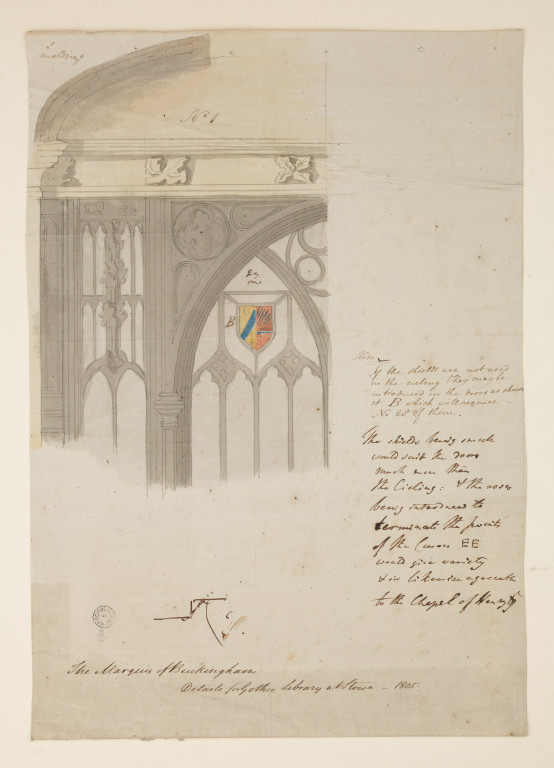 molding
No 1
B
Note
If the shields are not used
in the cieling they may be
introduced in the doors as shewn
at B which will require
No 28 of them.
The shields being small
would suit the doors
much more than
the Cieling: & the roses
being introduced to
terminate the points
of the Curves EE
would give variety
& is likewise agreeable
to the Chapel of Henry 7
The Marquis of Buckingham
Details for Gothic Library at Stowe - 1805.